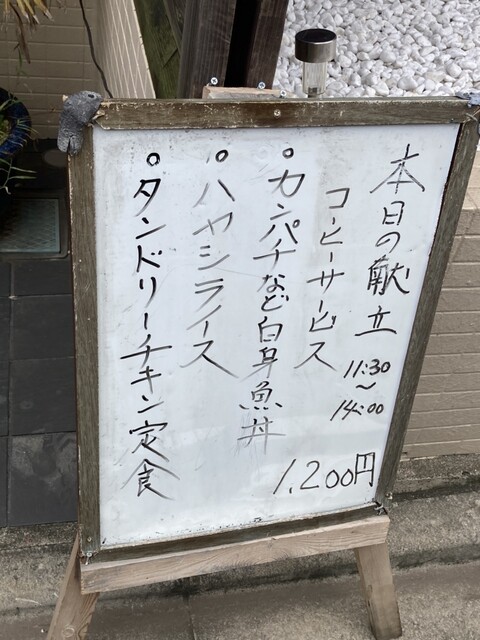 本日の献立
11:30
〜
14:00
コーヒーサービス
。カンパチなど白身魚丼
。ハヤシライス
。タンドリーチキン定食
1,200円